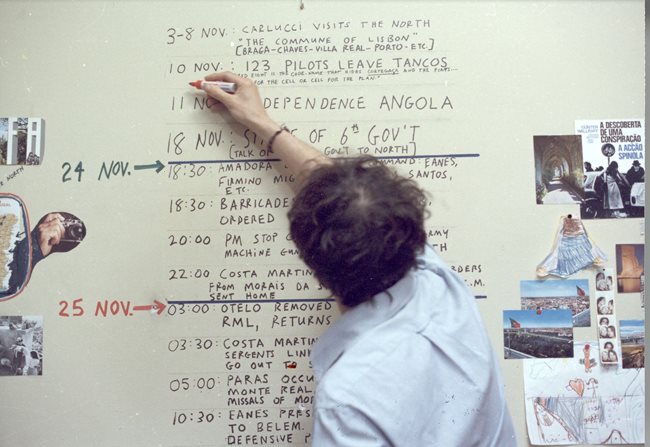 3-8 NOV.: CARLUCCI VISITS THE NORTH
"THE COMMUNE OF LISBON"
[BRAGA-CHAVES-VILLA REAL-PORTO-ETC.]
10 NOV.: 123 PILOTS LEAVE TANCOS
RED EIGHT IS THE CODE-NAME THAT HIDES CORTEGAÇA AND THE PLANS...
FOR THE CELL OR CELL FOR THE PLAN"
11 NO DEPENDENCE ANGOLA
18 NOV.: S OF 6th GOV'T
(TALK O GOV'T TO NORTH)
24 NOV.
18:30: AMADORA MMAND: EANES,
FIRMINO MIG SANTOS,
ETC.
18:30: BARRICADE
ORDERED
20:00 PM STOP C ARMY
MACHINE GUN
22:00 COSTA MARTIN RDERS
FROM MORAIS DA S F.M.
SENT HOME
25 NOV.
03:00: OTELO REMOVED
RML, RETURNS
03:30: COSTA MARTIN
SERGENTS LINK
GO OUT TO S
05:00: PARAS OCCU
MONTE REAL,
MISSALS OF MO
10:30: EANES PRES
TO BELEM.
DEFENSIVE P
NORTH
GÜNTER WALLRAFF
A DESCOBERTA
DE UMA
CONSPIRAÇÃO
A ACÇÃO
SPÍNOLA